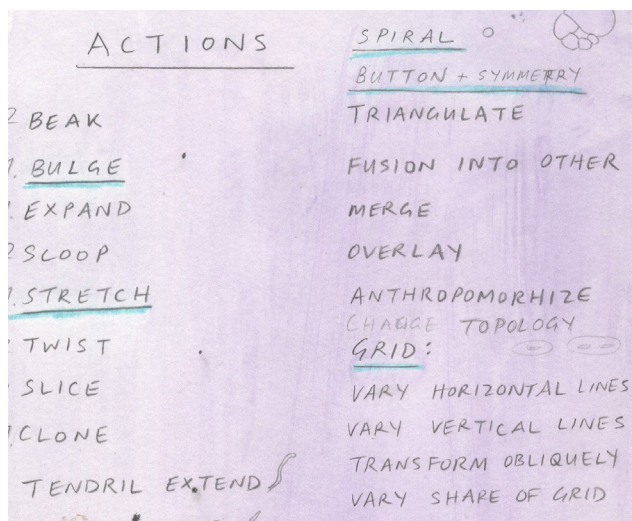 ACTIONS
BEAK
BULGE
EXPAND
SCOOP
STRETCH
TWIST
SLICE
CLONE
TENDRIL EXTEND
SPIRAL
BUTTON + SYMMETRY
TRIANGULATE
FUSION INTO OTHER
MERGE
OVERLAY
ANTHROPOMORHIZE
CHANGE TOPOLOGY
GRID:
VARY HORIZONTAL LINES
VARY VERTICAL LINES
TRANSFORM OBLIQUELY
VARY SHARE OF GRID